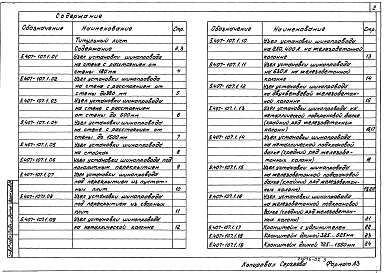 2
Содержание
Обозначение Наименование Стр.
Титульный лист
Содержание 2,3
5.407-107.1.01 Узел установки шинопровода
на стене с расстоянием от
стены 180 мм 4
5.407-107.1.02 Узел установки шинопровода
на стене с расстоянием от
стены до 350 мм 5
5.407-107.1.03 Узел установки шинопровода
на стене с расстоянием
от стены до 800 мм 6
5.407-107.1.04 Узел установки шинопровода
на стене с расстоянием
от стены до 1500 мм 7
5.407-107.1.05 Узел установки шинопровода
на стойках 8
5.407-107.1.06 Узел установки шинопровода под
монолитным перекрытием 9
5.407-107.1.07 Узел установки шинопровода
под перекрытием из пустот-
ных плит 10
5.407-107.1.08 Узел установки шинопровода
под перекрытием из сборных
плит 11
5.407-107.1.09 Узел установки шинопровода
на металлической колонне 12
Обозначение Наименование Стр.
5.407-107.1.10 Узел установки шинопровода
на 250, 400 А на железобетонной
колонне 13
5.407-107.1.11 Узел установки шинопровода
на 630 А на железобетонной
колонне 14
5.407-107.1.12 Узел установки шинопровода
на двухветвевой железобетон-
ной колонне 15
5.407-107.1.13 Узел установки шинопровода на
металлической подкрановой балке
(крайний ряд железобетонных
колонн) 16,17
5.407-107.1.14 Узел установки шинопровода
на металлической подкрановой
балке (средний ряд железобе-
тонных колонн 18
5.407-107.1.15 Узел установки шинопровода
на железобетонной подкрановой
балке (крайний ряд железобетон-
ных колонн) 19,20
5.407-107.1.16 Узел установки шинопровода
на железобетонной подкрановой
балке (средний ряд железобетон-
ных колонн) 21
5.407-107.1.17 Кронштейн с удлинителем 22
5.407-107.1.18 Кронштейн длиной 23
5.407-107.1.19 Кронштейн длиной 24
Копировал Сергеева Формат А3